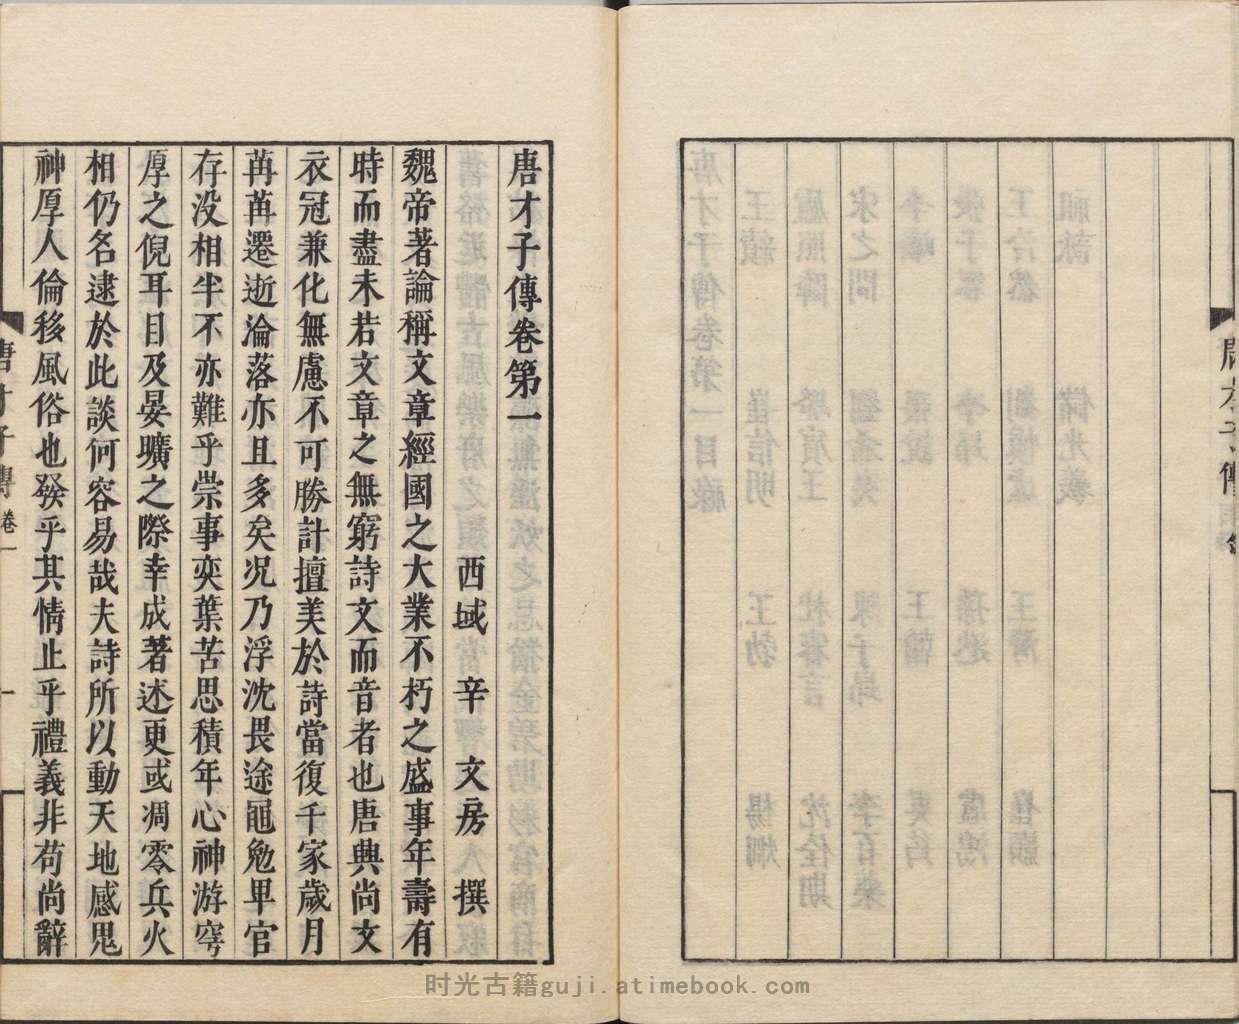 唐才子傳卷第一
西域 辛 文房 撰
魏帝著論稱文章經國之大業不朽之盛事年壽有
時而盡未若文章之無窮詩文而音者也唐興尚文
衣冠兼化無慮不可勝計擅美於詩當復千家歲月
苒苒遷逝淪落亦且多矣况乃浮沈畏途黽勉卑官
存没相半不亦難乎崇事奕葉苦思積年心神游穹
厚之倪耳目及晏曠之際幸成著述更或凋零兵火
相仍名逮於此談何容易哉夫詩所以動天地感鬼
神厚人倫移風俗也發乎其情止乎禮義非苟尚辭
唐才子傳 卷一
一
时光古籍guji.atimebook.com